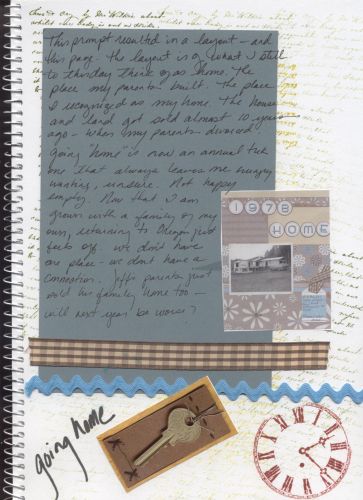 This prompt resulted in a layout - and
this page - the layout is of what I still
to this day think of as home. The
place my parents built. The place
I recognized as my home. The house
and land got sold almost 10 years
ago - when my parents divorced.
Going "home" is now an annual trek
one that always leaves me hungry
wanting, unsure. Not happy
empty. Now that I am
grown with a family of my
own, returning to Oregon just
feels off. We don't have
one place - we don't have a
connection. Jeff's parents just
sold his family home too -
will next year be worse?
1978
HOME
going home